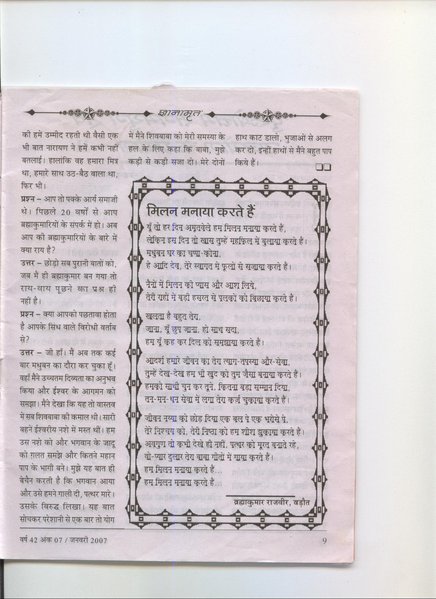 ज्ञानामृत
की हमें उम्मीद रहती थी वैसी एक
भी बात नारायण ने हमें कभी नहीं
बतलाई। हालांकि वह हमारा मित्र
था, हमारे साथ उठ-बैठ वाला था,
फिर भी।
प्रश्न – आप तो पक्के आर्य समाजी
थे। पिछले 20 वर्षों से आप
ब्रह्माकुमारियों के संपर्क में हो। अब
आप की ब्रह्माकुमारियों के बारे में
क्या राय है?
उत्तर – छोड़ो सब पुरानी बातों को,
जब मैं ही ब्रह्माकुमार बन गया तो
राय-वाय पूछने का प्रश्न ही
नहीं है।
प्रश्न – क्या आपको पछतावा होता
है आपके सिंध वाले विरोधी वर्ताव
से?
उत्तर – जी हाँ। मैं अब तक कई
बार मधुबन का दौरा कर चुका हूँ।
वहाँ मैंने उच्चतम दिव्यता का अनुभव
किया और ईश्वर के आगमन को
समझा। मैंने देखा कि यह तो वास्तव
में सब शिवबाबा की कमाल थी। सारी
बहनें ईश्वरीय नशे में मस्त थीं। हम
उस नशे को और भगवान के जादू
को ग़लत समझे और कितने महान
पाप के भागी बने। मुझे यह बात ही
बेचैन करती है कि भगवान आया
और उसे हमने गाली दी, पत्थर मारे।
उसके विरुद्ध लिखा। यह बात
सोचकर परेशानी से एक बार तो योग
में मैंने शिवबाबा को मेरी समस्या के
हल के लिए कहा कि बाबा, मुझे
कड़ी से कड़ी सजा दो। मेरे दोनों
हाथ काट डालो, भुजाओं से अलग
कर दो, इन्हीं हाथों से मैंने बहुत पाप
किये हैं।
मिलन मनाया करते हैं
यूँ तो हर दिन अमृतवेले हम मिलन मनाया करते हैं,
लेकिन इस दिन तो खास तुम्हें महफिल में बुलाया करते हैं।
मधुबन घर का चप्पा-कोना,
हे आदि देव, तेरे स्वागत में फूलों से सजाया करते हैं।
नैनों में मिलन की प्यास और आश लिये,
तेरी राहों में बड़ी हसरत से पलकों को बिछाया करते हैं।
खलता है बहुत तेरा,
जाना, यूँ छुप जाना, हो साथ सदा,
हम यूँ कह कर दिल को समझाया करते हैं।
आदर्श हमारे जीवन का तेरा त्याग-तपस्या और-सेवा,
तुम्हें देख-देख हम भी खुद को तुम जैसा बनाया करते हैं।
हमको साथी चुन कर तूने, कितना बड़ा सम्मान दिया,
तन-मन-धन सेवा में लगा तेरा कर्ज चुकाया करते हैं।
जीवन नय्या को छोड़ दिया एक बल पे एक भरोसे पे,
तेरे निश्चय को, तेरी निष्ठा को हम शीश झुकाया करते हैं।
अवगुण तो कभी देखे ही नहीं, पत्थर को मूरत बनाते रहे,
वो-प्यार दुलार तेरा बाबा गीतों में गाया करते हैं।
हम मिलन मनाया करते हैं...
हम मिलन मनाया करते हैं...
ब्रह्माकुमार राजवीर, बड़ौत
वर्ष 42 अंक 07 / जनवरी 2007
9